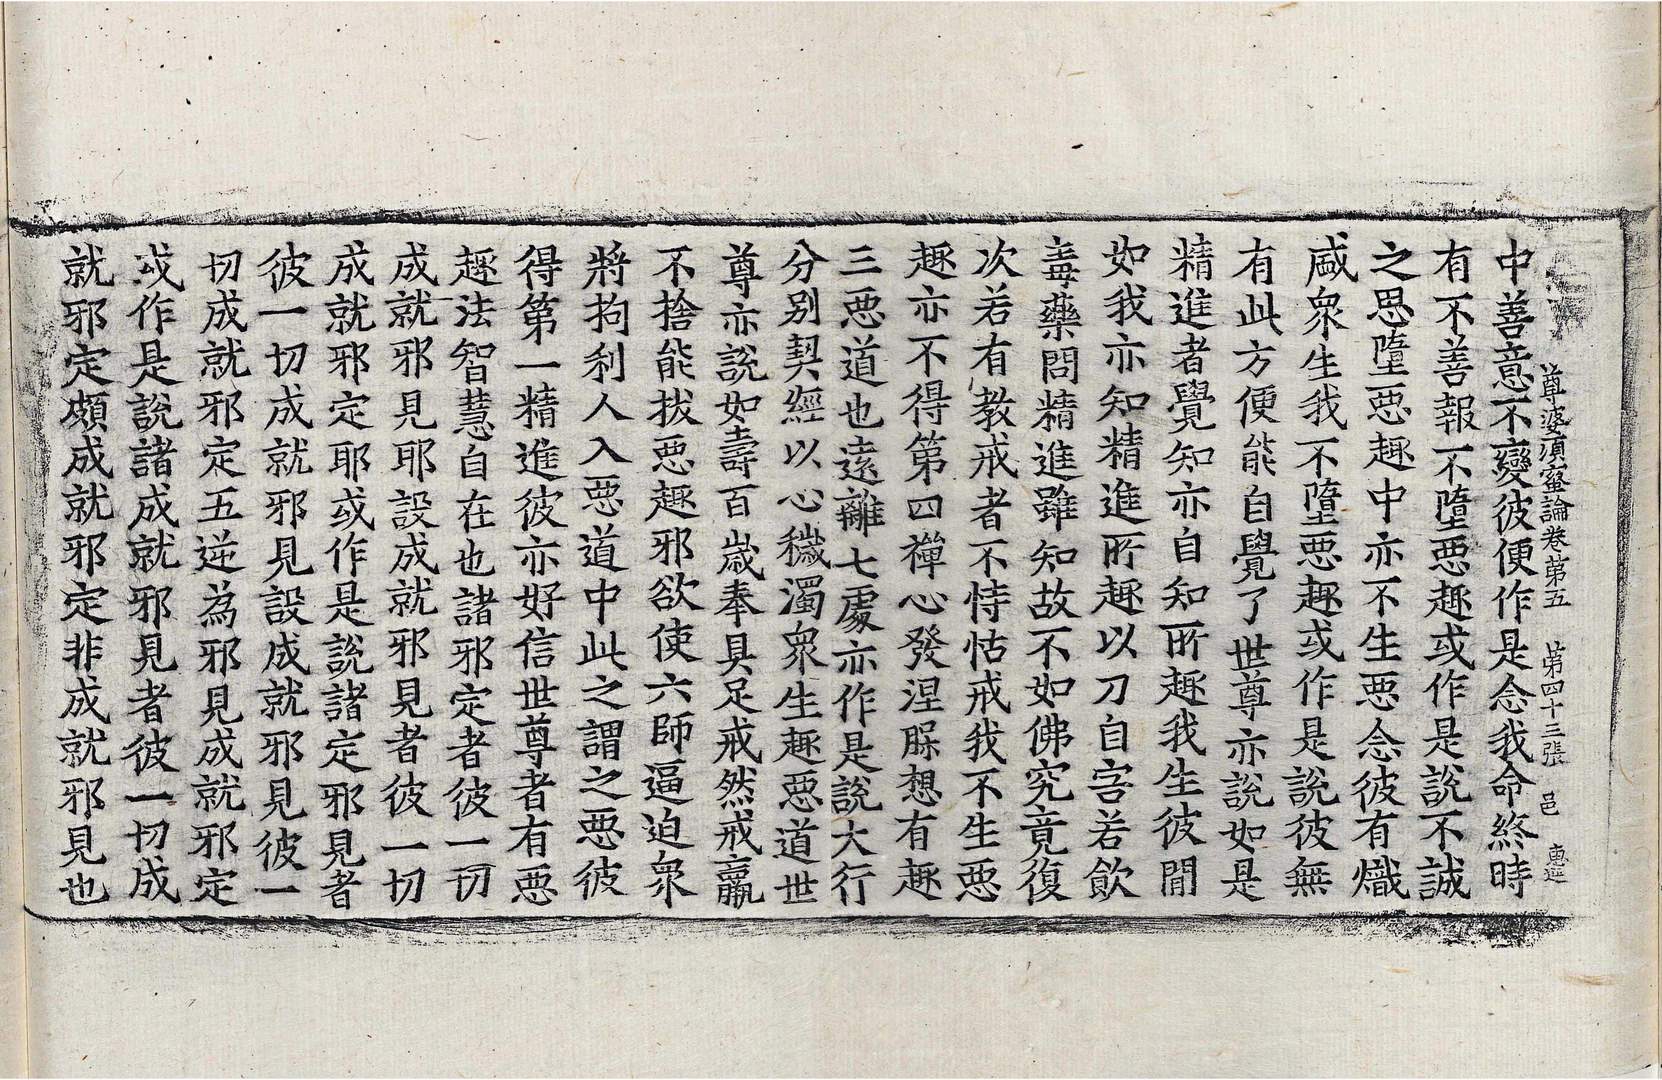 尊婆須蜜論卷第五 第四十三張 邑
中善意不變彼便作是念我命終時
有不善報不墮惡趣或作是說不誠
之思墮惡趣中亦不生惡念彼有熾
盛衆生我不墮惡趣或作是說彼無
有此方便能自覺了世尊亦說如是
精進者覺知亦自知所趣我生彼間
如我亦知精進所趣以刀自害若飲
毒藥問精進雖知故不如佛究竟復
次若有教戒者不恃怙戒我不生惡
趣亦不得第四禪心發涅槃想有趣
三惡道也遠離七處亦作是說大行
分別契經以心穢濁衆生趣惡道世
尊亦說如壽百歲奉具足戒然戒羸
不捨能拔惡趣邪欲使六師逼迫衆
將拘利人入惡道中此之謂之惡彼
得第一精進彼亦好信世尊者有惡
趣法智慧自在也諸邪定者彼一切
成就邪見耶設成就邪見者彼一切
成就邪定耶或作是說諸定邪見者
彼一切成就邪見設成就邪見彼一
切成就邪定五逆為邪見成就邪定
或作是說諸成就邪見者彼一切成
就邪定頗成就邪定非成就邪見也